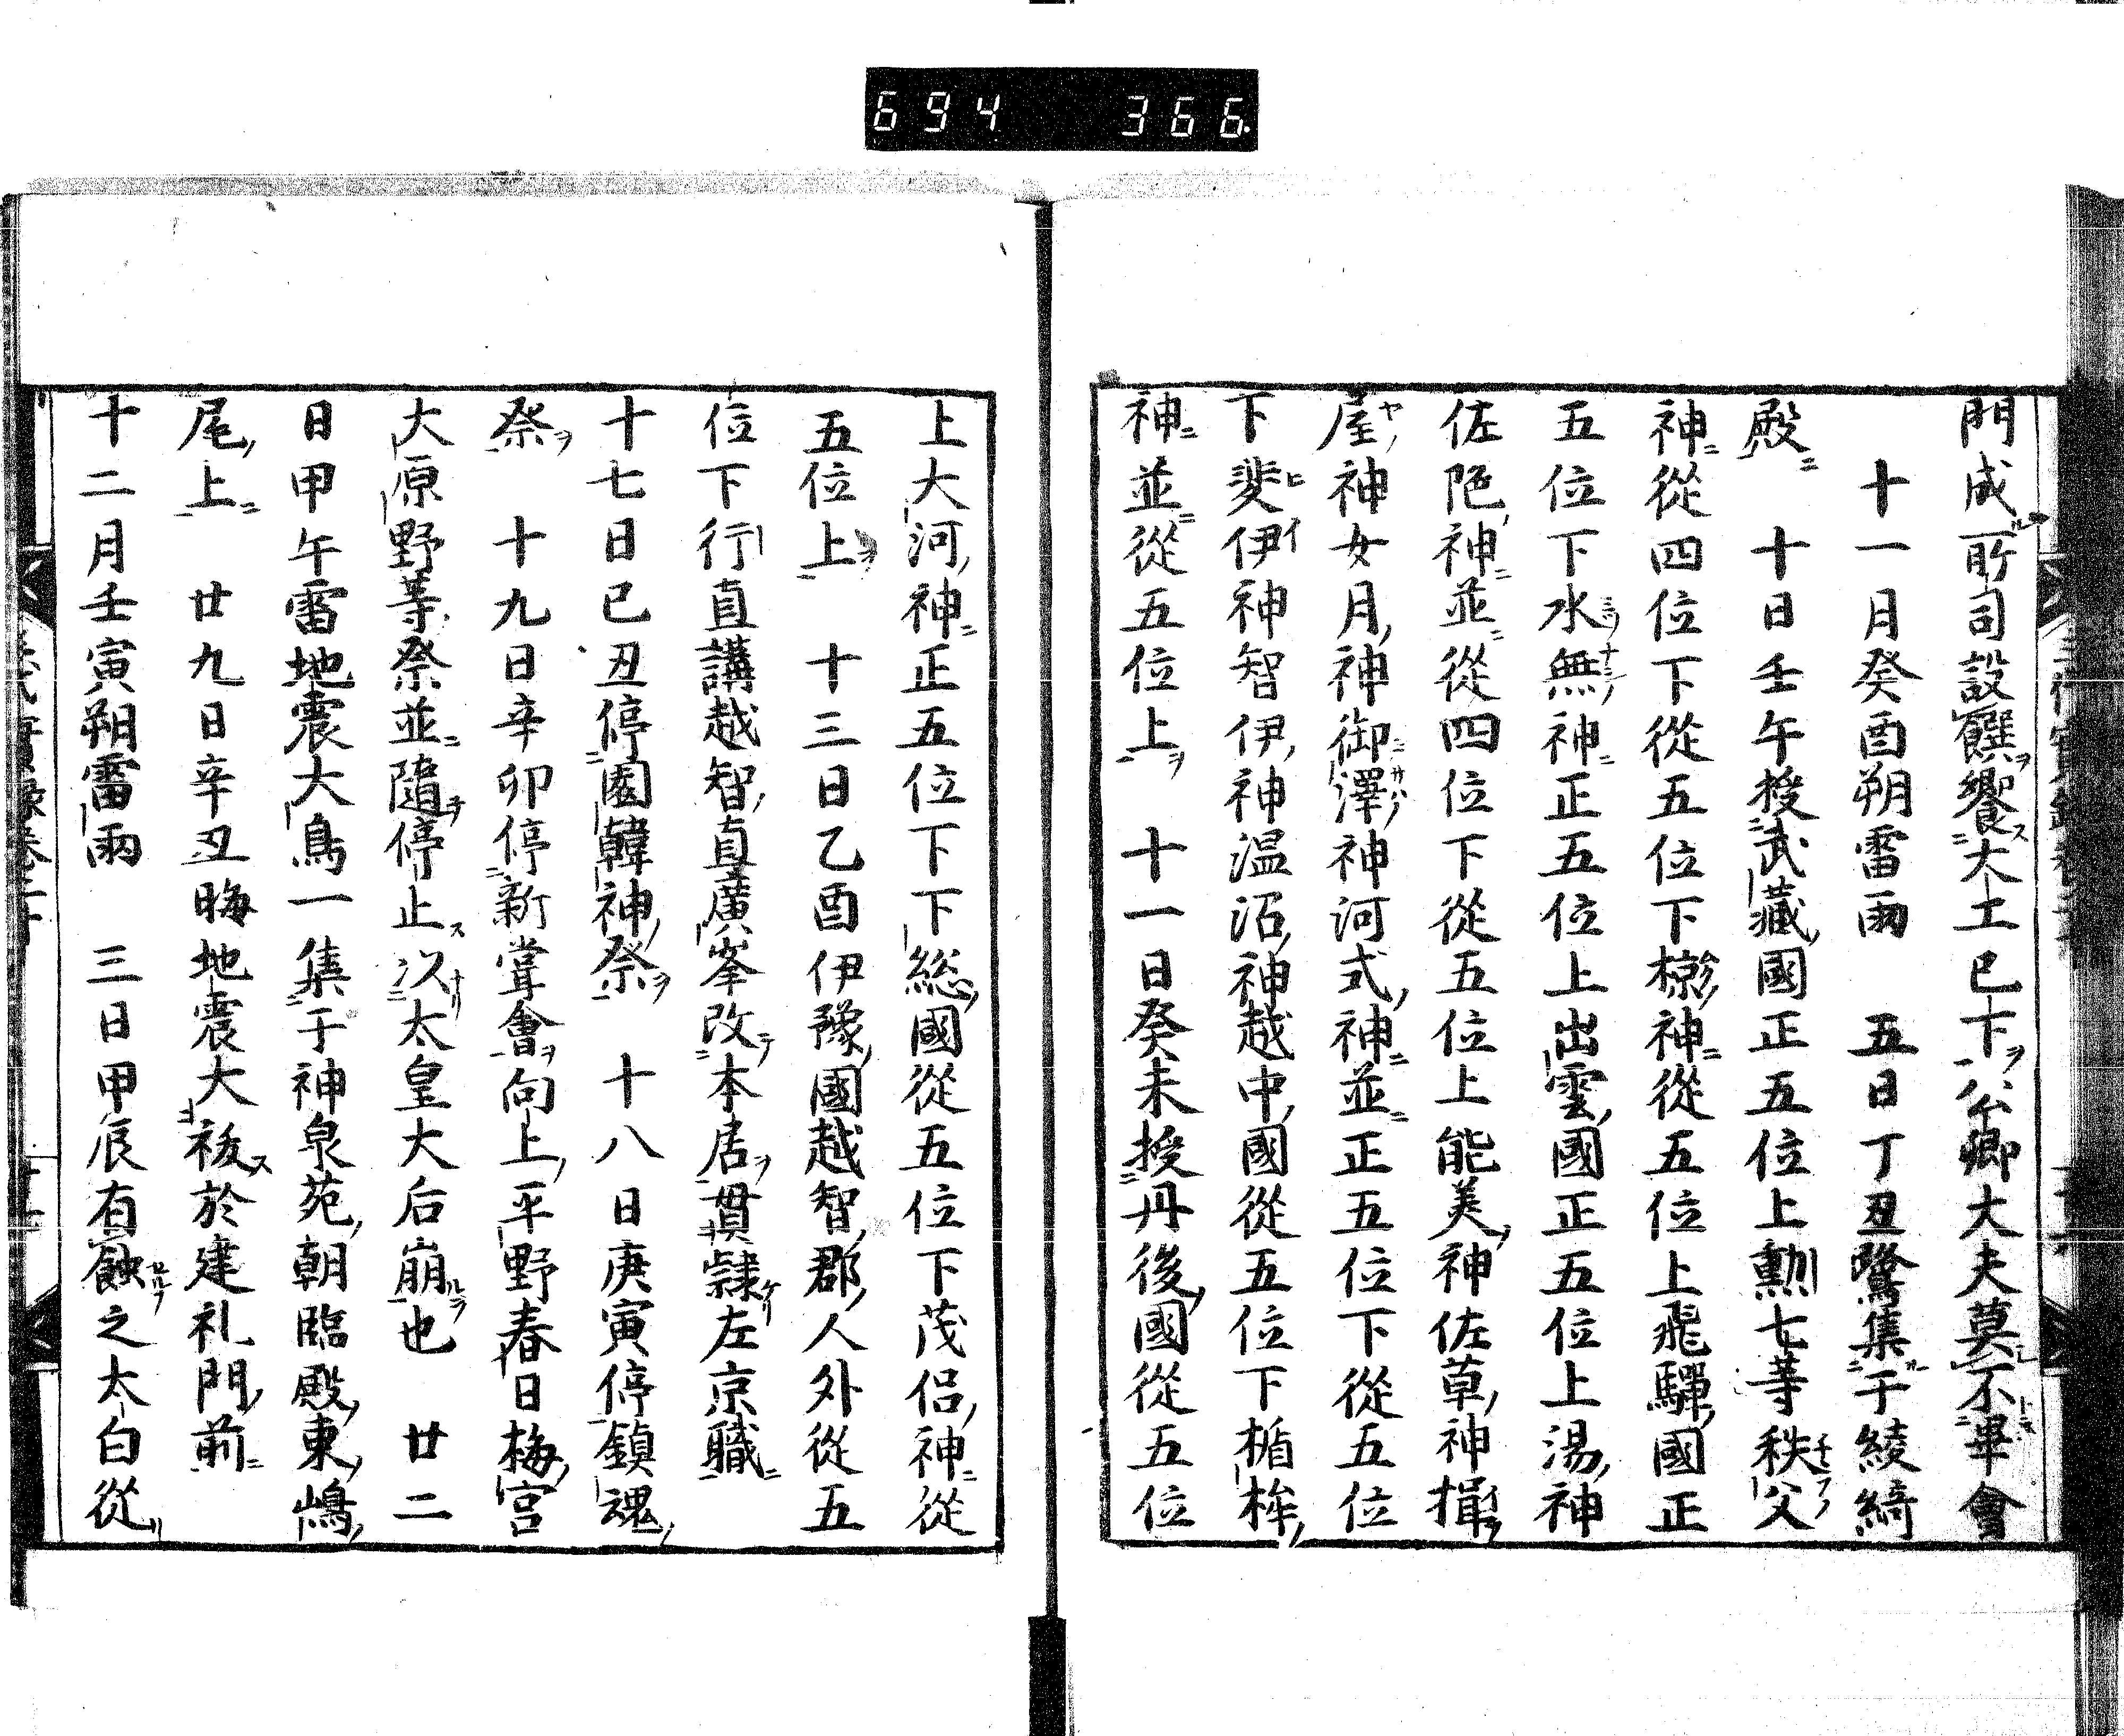 694 366.
門成所司設饌饗大工已下公卿大夫莫不畢會
十一月癸酉朔雷雨 五日丁丑鷺集于綾綺
殿 十日壬午授武藏國正五位上勳七等秩父
神從四位下從五位下椋神從五位上飛驒國正
五位下水無神正五位上出雲國正五位上湯神
佐陁神並從四位下從五位上能美神佐草神揖
屋神女月神御澤神河式神並正五位下從五位
下斐伊神智伊神温沼神越中國從五位下楯桙
神並從五位上 十一日癸未授丹後國從五位
上大河神正五位下下総國從五位下茂侶神從
五位上 十三日乙酉伊豫國越智郡人外從五
位下行直講越智直廣峯改本居貫隷左京職
十七日已丑停園韓神祭 十八日庚寅停鎮魂
祭 十九日辛卯停新甞會向上平野春日梅宮
大原野等祭並隨停止以太皇大后崩也 廿二
日甲午雷地震大鳥一集于神泉苑朝臨殿東嶋
尾上 廿九日辛丑晦地震大祓於建礼門前
十二月壬寅朔雷雨 三日甲辰有蝕之太白從